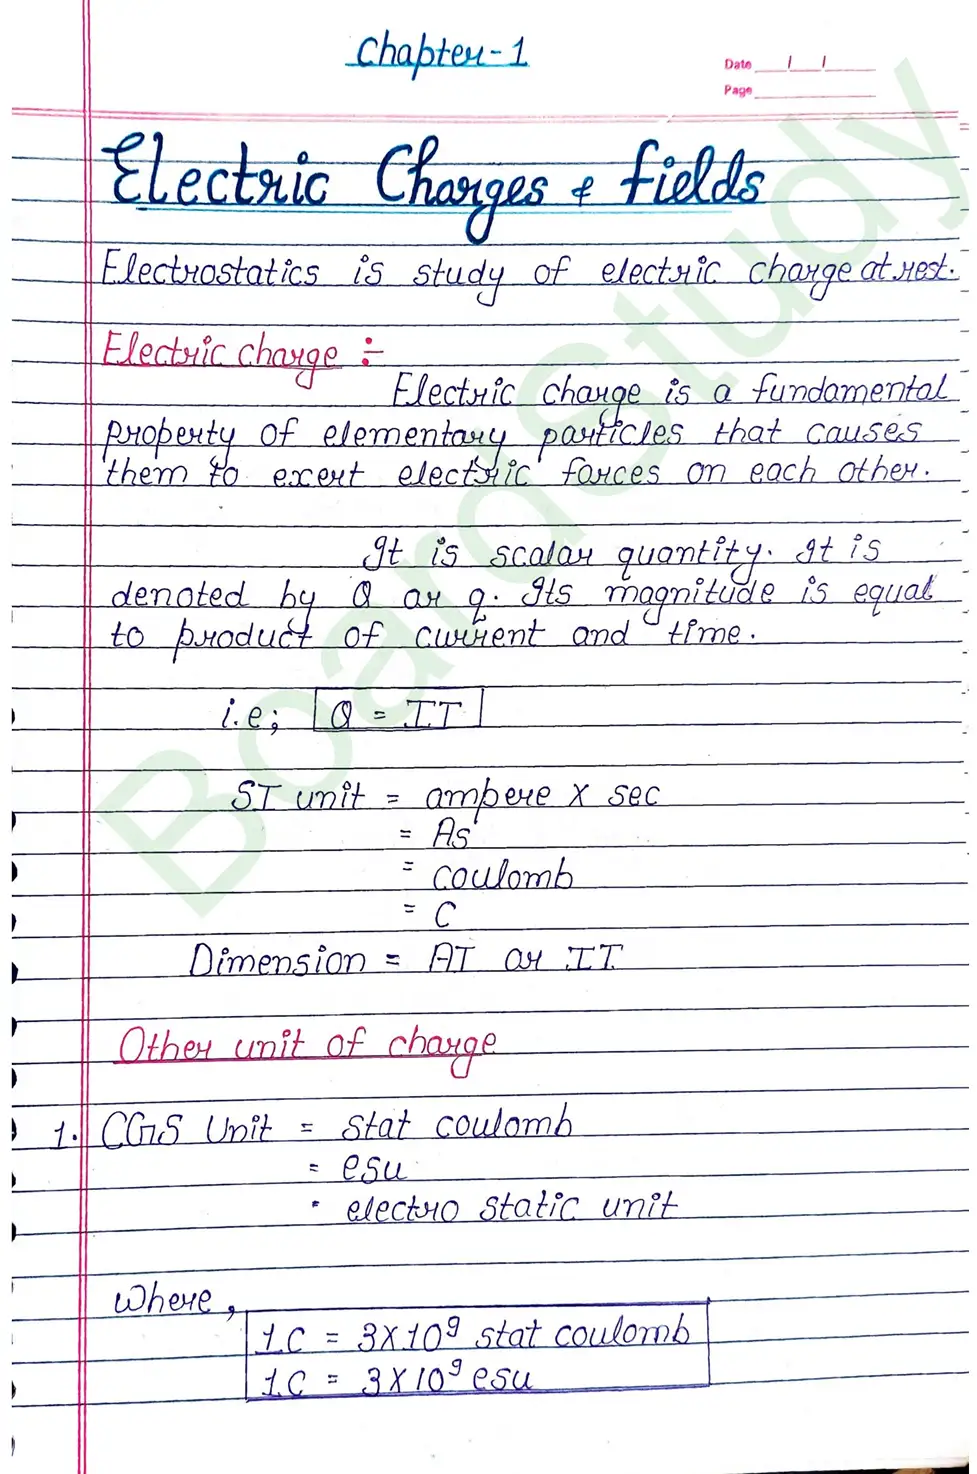 Chapter-1
Date / /
Page
Electric Charges & fields
Electrostatics is study of electric charge at rest.
Electric charge :-
Electric charge is a fundamental
property of elementary particles that causes
them to exert electric forces on each other.
It is scalar quantity. It is
denoted by Q or q. Its magnitude is equal
to product of current and time.
i.e; Q = IT
SI unit = ampere X sec
= As
= coulomb
= C
Dimension = AT or IT
Other unit of charge
1. CGS Unit = stat coulomb
= esu
· electro static unit
where,
1C = 3X10⁹ stat coulomb
1C = 3X10⁹ esu
BoardStudy